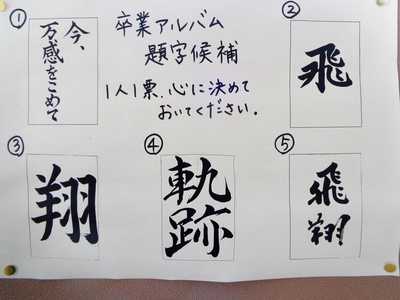 卒業アルバム
題字候補
1人1票、心に決めて
おいてください。
①
今、
万感をこめて
②
飛
③
翔
④
軌
跡
⑤
飛
翔